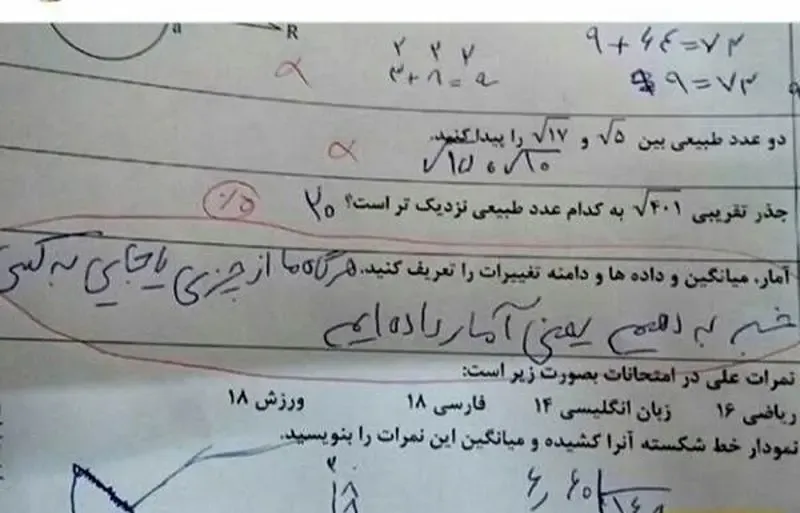 a
R
۹ + ۶۴ = ۷۳
۹ = ۷۳
۲ ۲ ۲
۳ + ۸ = ۹
دو عدد طبیعی بین √۵ و √۱۷ را پیدا کنید.
√۱۵ و √۱۰
جذر تقریبی √۴۰۱ به کدام عدد طبیعی نزدیک تر است؟ ۲۰
آمار، میانگین و داده ها و دامنه تغییرات را تعریف کنید. هرگاه ما از چیزی یا جایی به کسی
خبر به دهیم یعنی آمار داده ایم
نمرات علی در امتحانات بصورت زیر است:
ریاضی ۱۶ زبان انگلیسی ۱۴ فارسی ۱۸ ورزش ۱۸
نمودار خط شکسته آنرا کشیده و میانگین این نمرات را بنویسید.
۲۰
۱۸